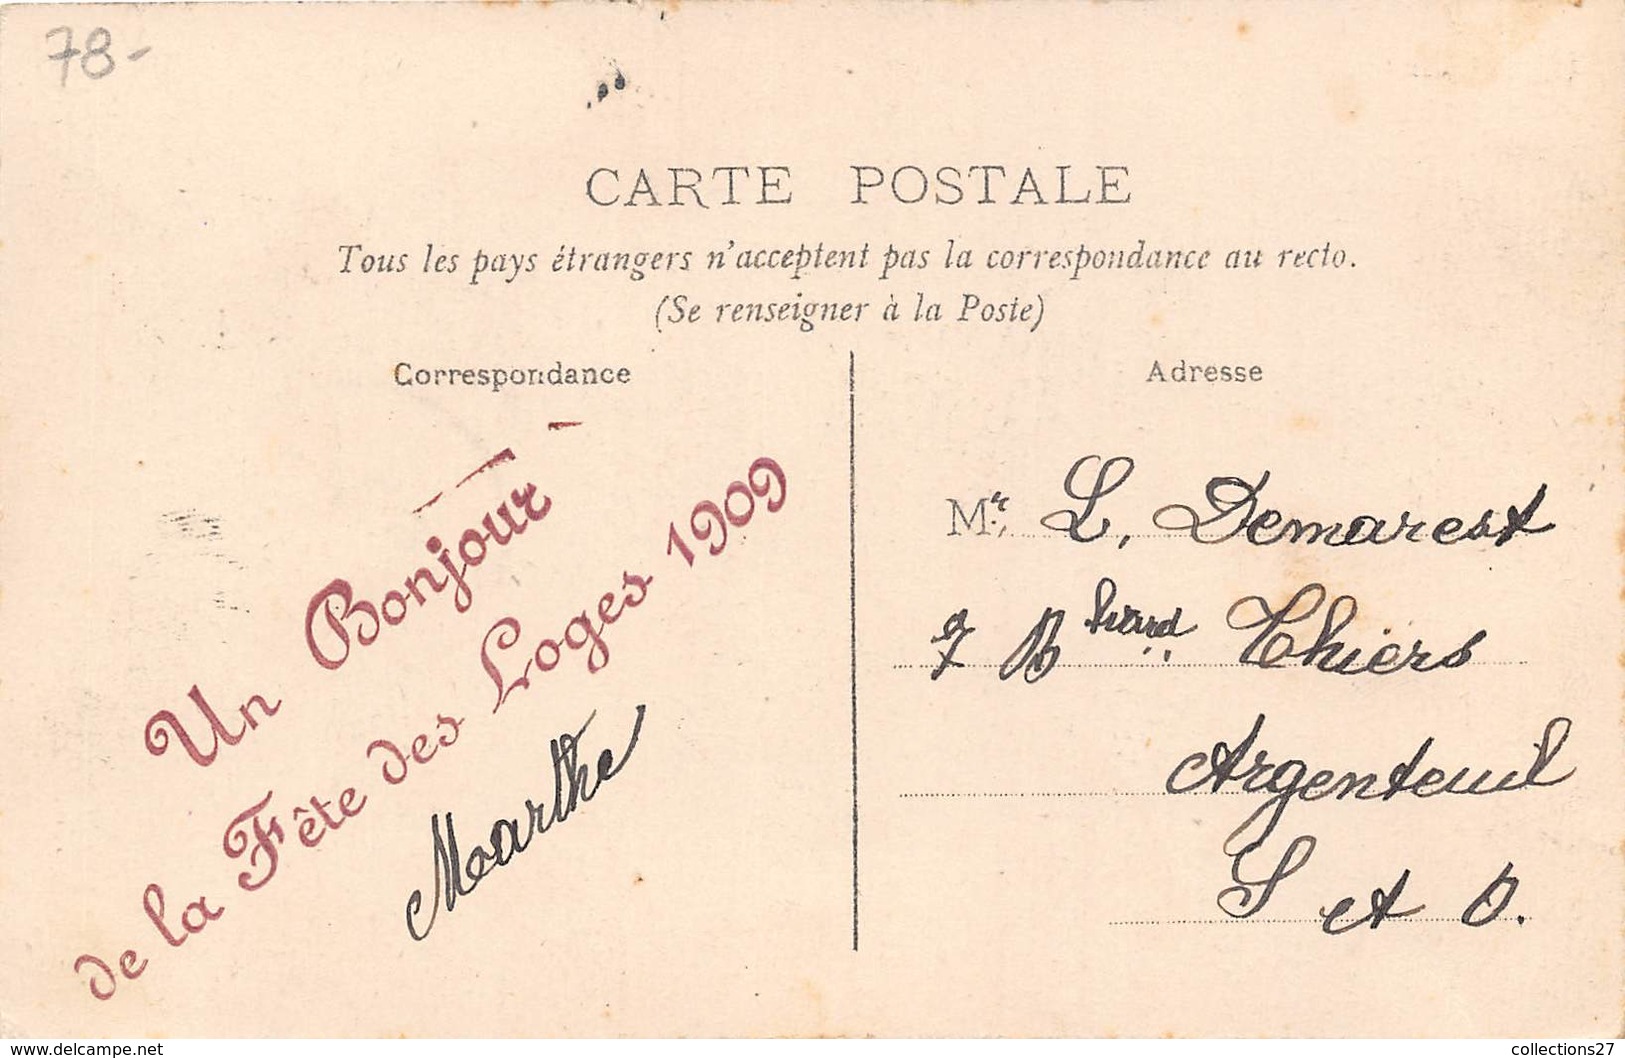 78-
CARTE POSTALE
Tous les pays étrangers n'acceptent pas la correspondance au recto.
(Se renseigner à la Poste)
Correspondance
Un Bonjour
de la Fête des Loges 1909
Marthe
Adresse
Mr. L. Demarest
7 Bd Thiers
Argenteuil
S et O.
www.delcampe.net
collections27